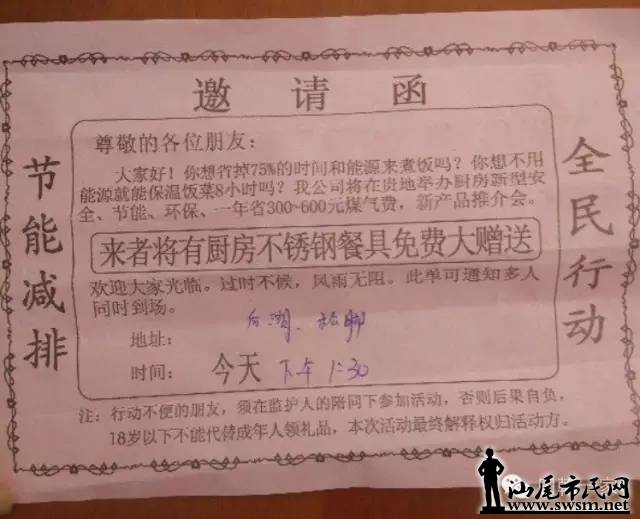 邀请函
节能减排
全民行动
尊敬的各位朋友：
大家好！你想省掉75%的时间和能源来煮饭吗？你想不用
能源就能保温饭菜8小时吗？我公司将在贵地举办厨房新型安
全、节能、环保、一年省300~600元煤气费，新产品推介会。
来者将有厨房不锈钢餐具免费大赠送
欢迎大家光临。过时不候，风雨无阻。此单可通知多人
同时到场。
地址：后湖、
时间：今天 下午 1:30
注：行动不便的朋友，须在监护人的陪同下参加活动，否则后果自负，
18岁以下不能代替成年人领礼品，本次活动最终解释权归活动方。
汕尾市民网
www.swsm.net